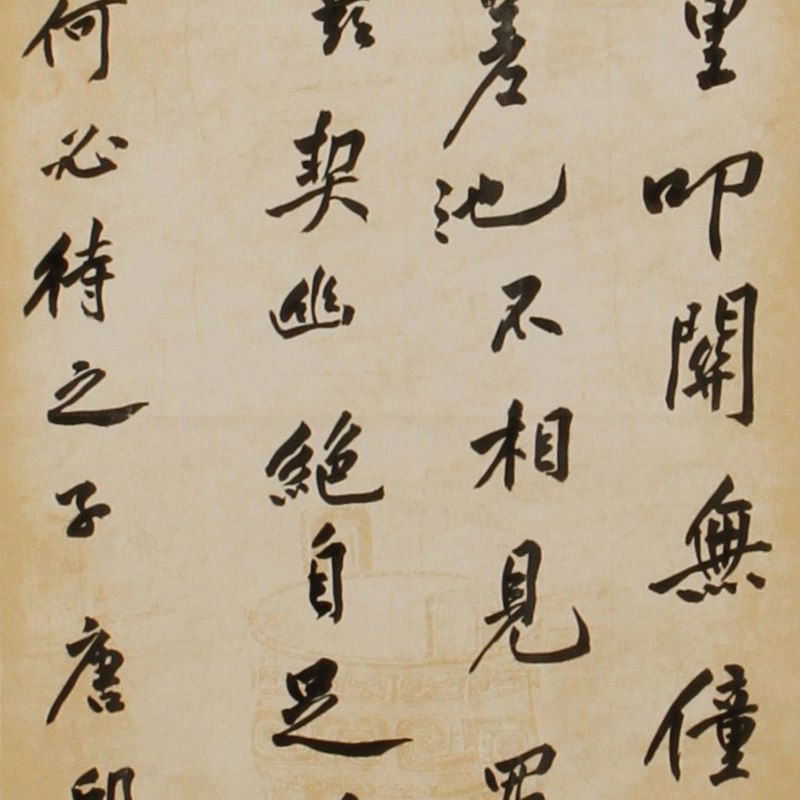 里叩關無僮
差池不相見
茲契幽絶自足
何必待之子唐邱